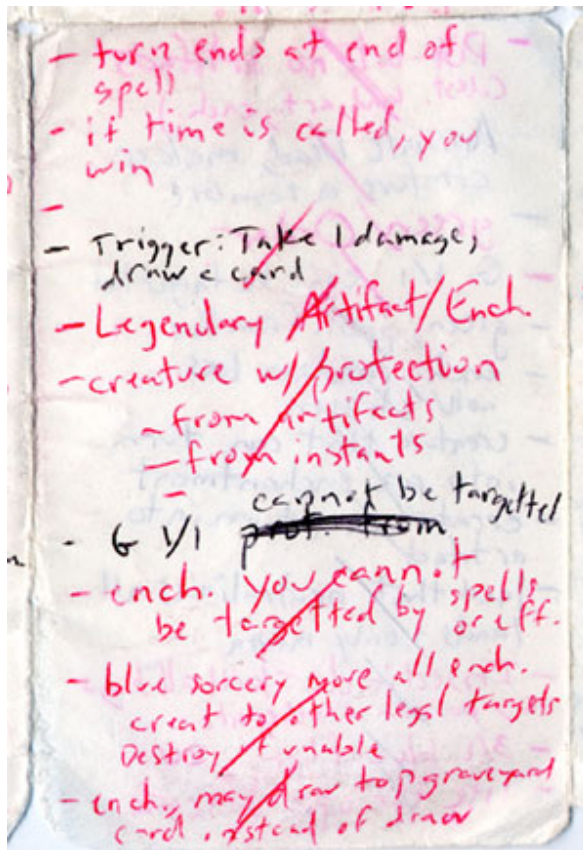 - turn ends at end of
spell
- if time is called, you
win
-
- Trigger: Take 1 damage,
draw a card
- Legendary Artifact/Ench.
- creature w/ protection
- from artifacts
- from instants
-
cannot be targetted
- G 1/1 prot. from
- ench. you cannot
be targetted by spells
or eff.
- blue sorcery move all ench.
creat to other legal targets
Destroy if unable
- ench., may draw top graveyard
card instead of draw